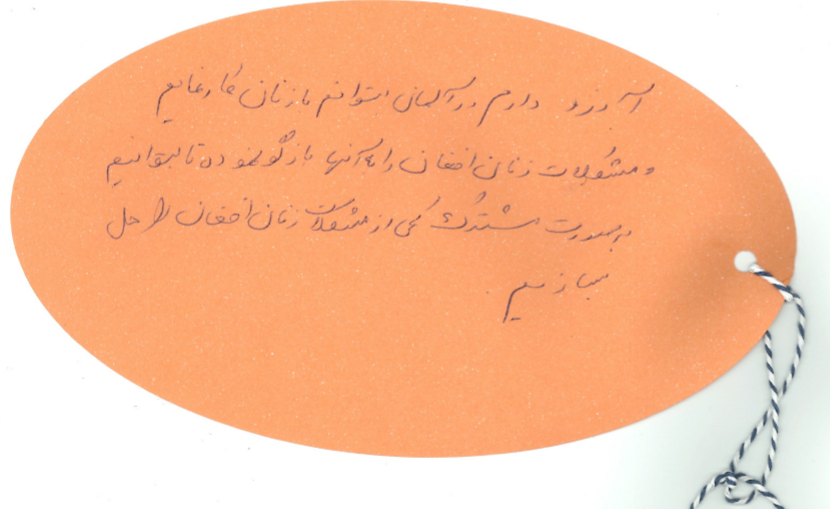 آرزو دارم در آلمان بتوانم با زنان کار نمایم
و مشکلات زنان افغان را به آنها بازگو نموده تا بتوانیم
به صورت مشترک کمی از مشکلات زنان افغان را حل
بسازیم.